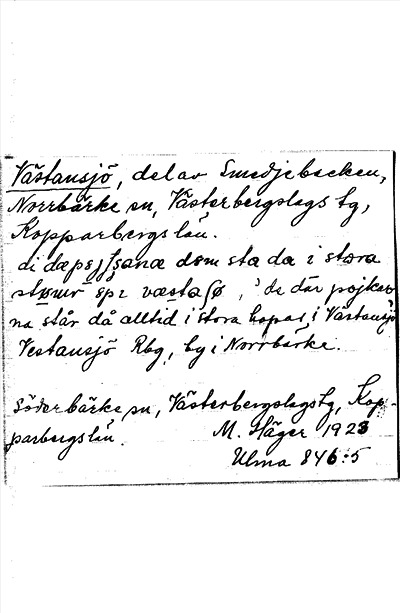 Västansjö, del av Smedjebacken,
Norrbärke sn, Västerbergslags tg,
Kopparbergs län.
di dæ sta da i stora
i væstaʃø, 'de där pojkar-
na står då alltid i stora hopar i Västansjö
Vestansjö Rbg, by i Norrbärke.
Söderbärke sn, Västerbergslags tg, Kop-
parbergs län.
M. Häger 1923
Ulma 846:5